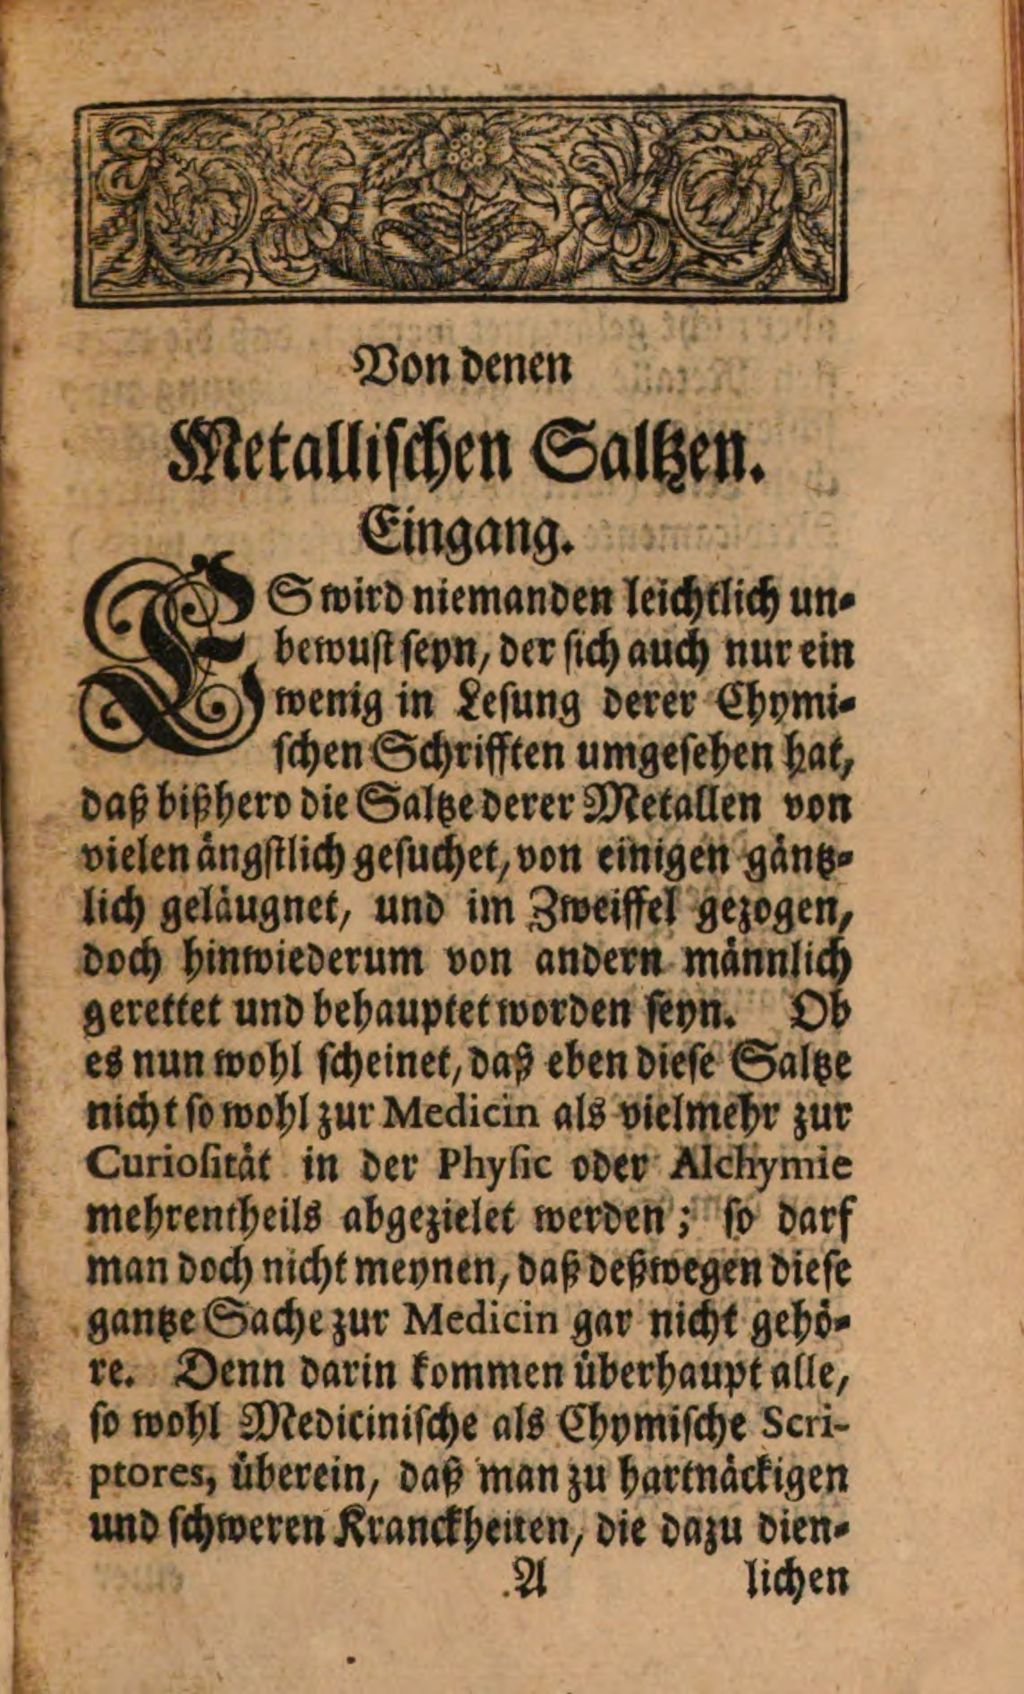 Von denen
Metallischen Saltzen.
Eingang.
ES wird niemanden leichtlich un-
bewust seyn, der sich auch nur ein
wenig in Lesung derer Chymi-
schen Schrifften umgesehen hat,
daß bißhero die Saltze derer Metallen von
vielen ängstlich gesuchet, von einigen gäntz-
lich geläugnet, und im Zweiffel gezogen,
doch hinwiederum von andern männlich
gerettet und behauptet worden seyn. Ob
es nun wohl scheinet, daß eben diese Saltze
nicht so wohl zur Medicin als vielmehr zur
Curiosität in der Physic oder Alchymie
mehrentheils abgezielet werden; so darf
man doch nicht meynen, daß deßwegen diese
gantze Sache zur Medicin gar nicht gehö-
re. Denn darin kommen überhaupt alle,
so wohl Medicinische als Chymische Scri-
ptores, überein, daß man zu hartnäckigen
und schweren Kranckheiten, die dazu dien-
A lichen